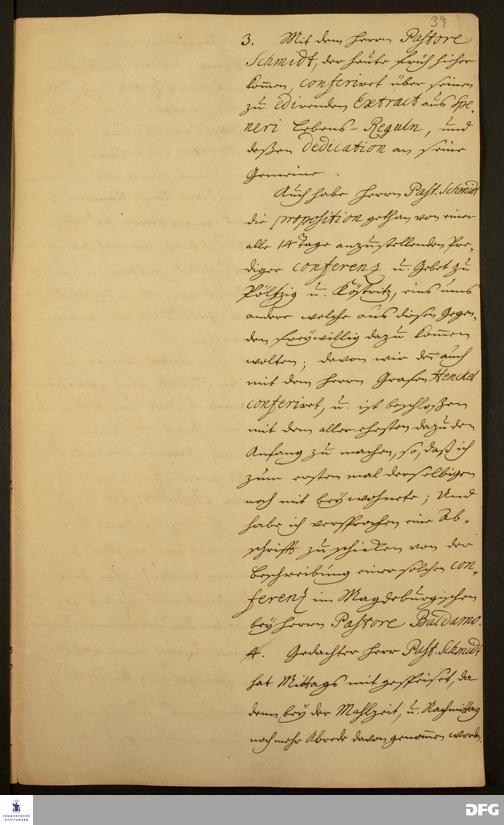 39
3. Mit dem Herrn Pastore
Schmidt, der heute früh hieher
kom̄en, conferiret über seinen
zu edirenden Extract aus Spe-
neri Lebens-Reguln, und
deßen Dedication an seine
Gemeine.
Auch habe Herrn Past. Schmidt
die proposition gethan von einer
alle 14 Tage anzustellenden Pre-
diger conferenz u. Gebet zu
Pöltzig u. Köstritz, eins ums
andere welche aus diesen Gegen-
den freywillig dazu kom̄en
wolten; davon wir den auch
mit dem Herrn Grafen Henckel
conferiret, u. ist beschloßen
mit dem aller ehesten dazu den
Anfang zu machen, so, daß ich
zum ersten mal derselbigen
noch mit beywohnete; Und
habe ich versprochen eine Ab-
schrifft zu schicken von der
Beschreibung einer solchen con-
ferenz im Magdeburgischen
bey Herrn Pastore Baldamo.
4. Gedachter Herr Past. Schmidt
hat Mittags mit gespeiset, da
denn bey der Mahlzeit, u. Nachmittag
noch mehr Abrede davon genom̄en worden.
FRANCKESCHE
STIFTUNGEN
DFG